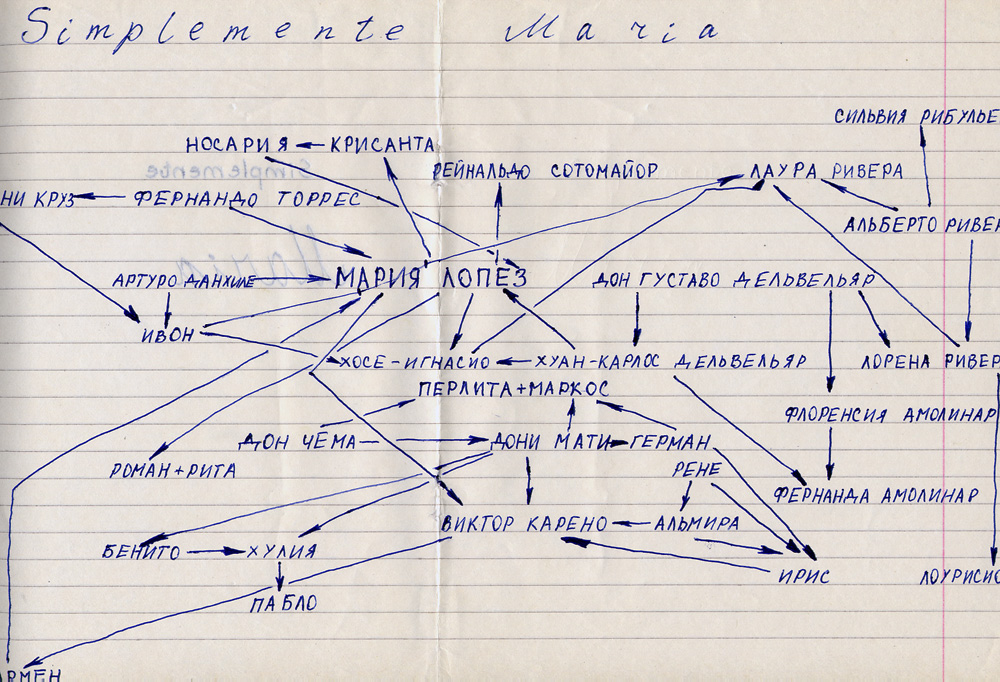 Simplemente Maria
СИЛЬВИЯ РИБУЛЬЕ
НОСАРИЯ КРИСАНТА
РЕЙНАЛЬДО СОТОМАЙОР
ЛАУРА РИВЕРА
НИ КРУЗ ФЕРНАНДО ТОРРЕС
АЛЬБЕРТО РИВЕР
АРТУРО ДАНХИЛЕ
МАРИЯ ЛОПЕЗ
ДОН ГУСТАВО ДЕЛЬВЕЛЬЯР
ИВОН
ХОСЕ-ИГНАСИО ХУАН-КАРЛОС ДЕЛЬВЕЛЬЯР
ЛОРЕНА РИВЕР
ПЕРЛИТА+МАРКОС
ФЛОРЕНСИЯ АМОЛИНАР
ДОН ЧЕМА ДОНИ МАТИ ГЕРМАН
РОМАН+РИТА
РЕНЕ
ФЕРНАНДА АМОЛИНАР
ВИКТОР КАРЕНО АЛЬМИРА
БЕНИТО ХУЛИЯ
ИРИС
ЛОУРИСИО
ПАБЛО
АРМЕН